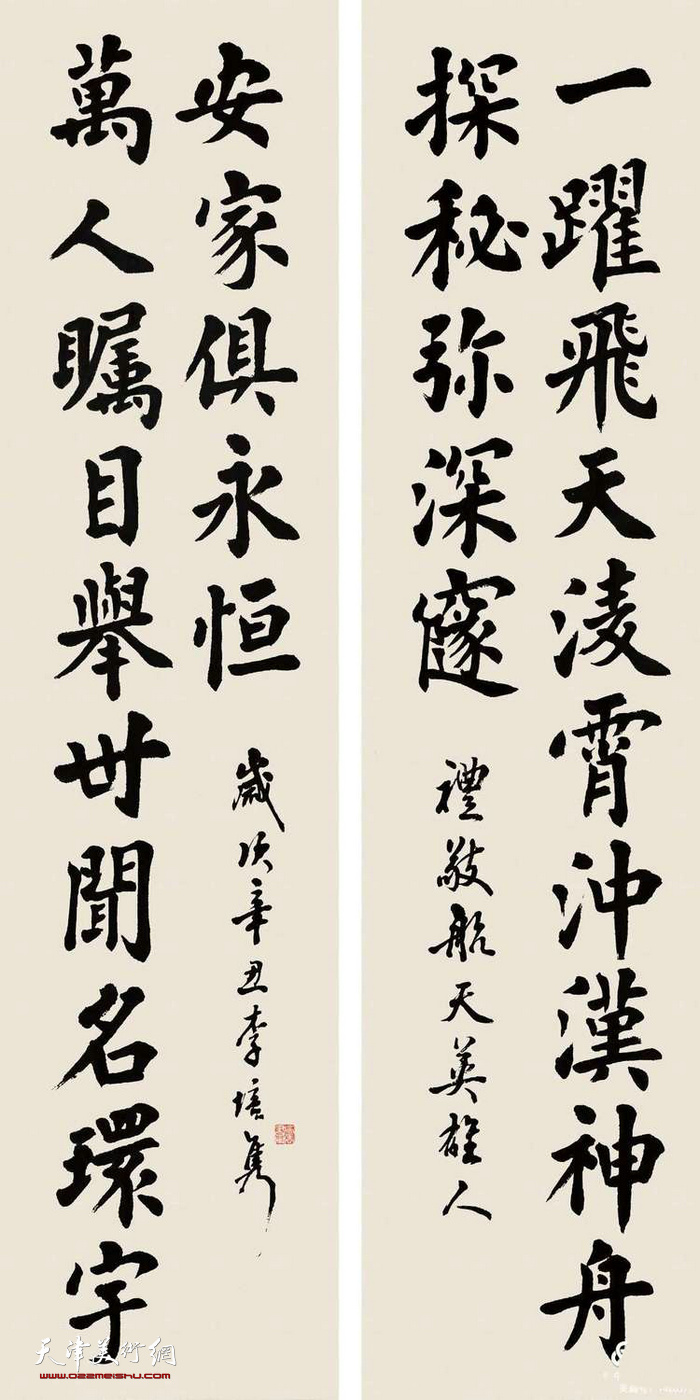 一躍飛天淩霄沖漢神舟
探秘弥深邃
禮敬航天英雄人
萬人瞩目舉世聞名環宇
安家俱永恒
歲次辛丑李培隽
天津美術網
www.022meishu.com